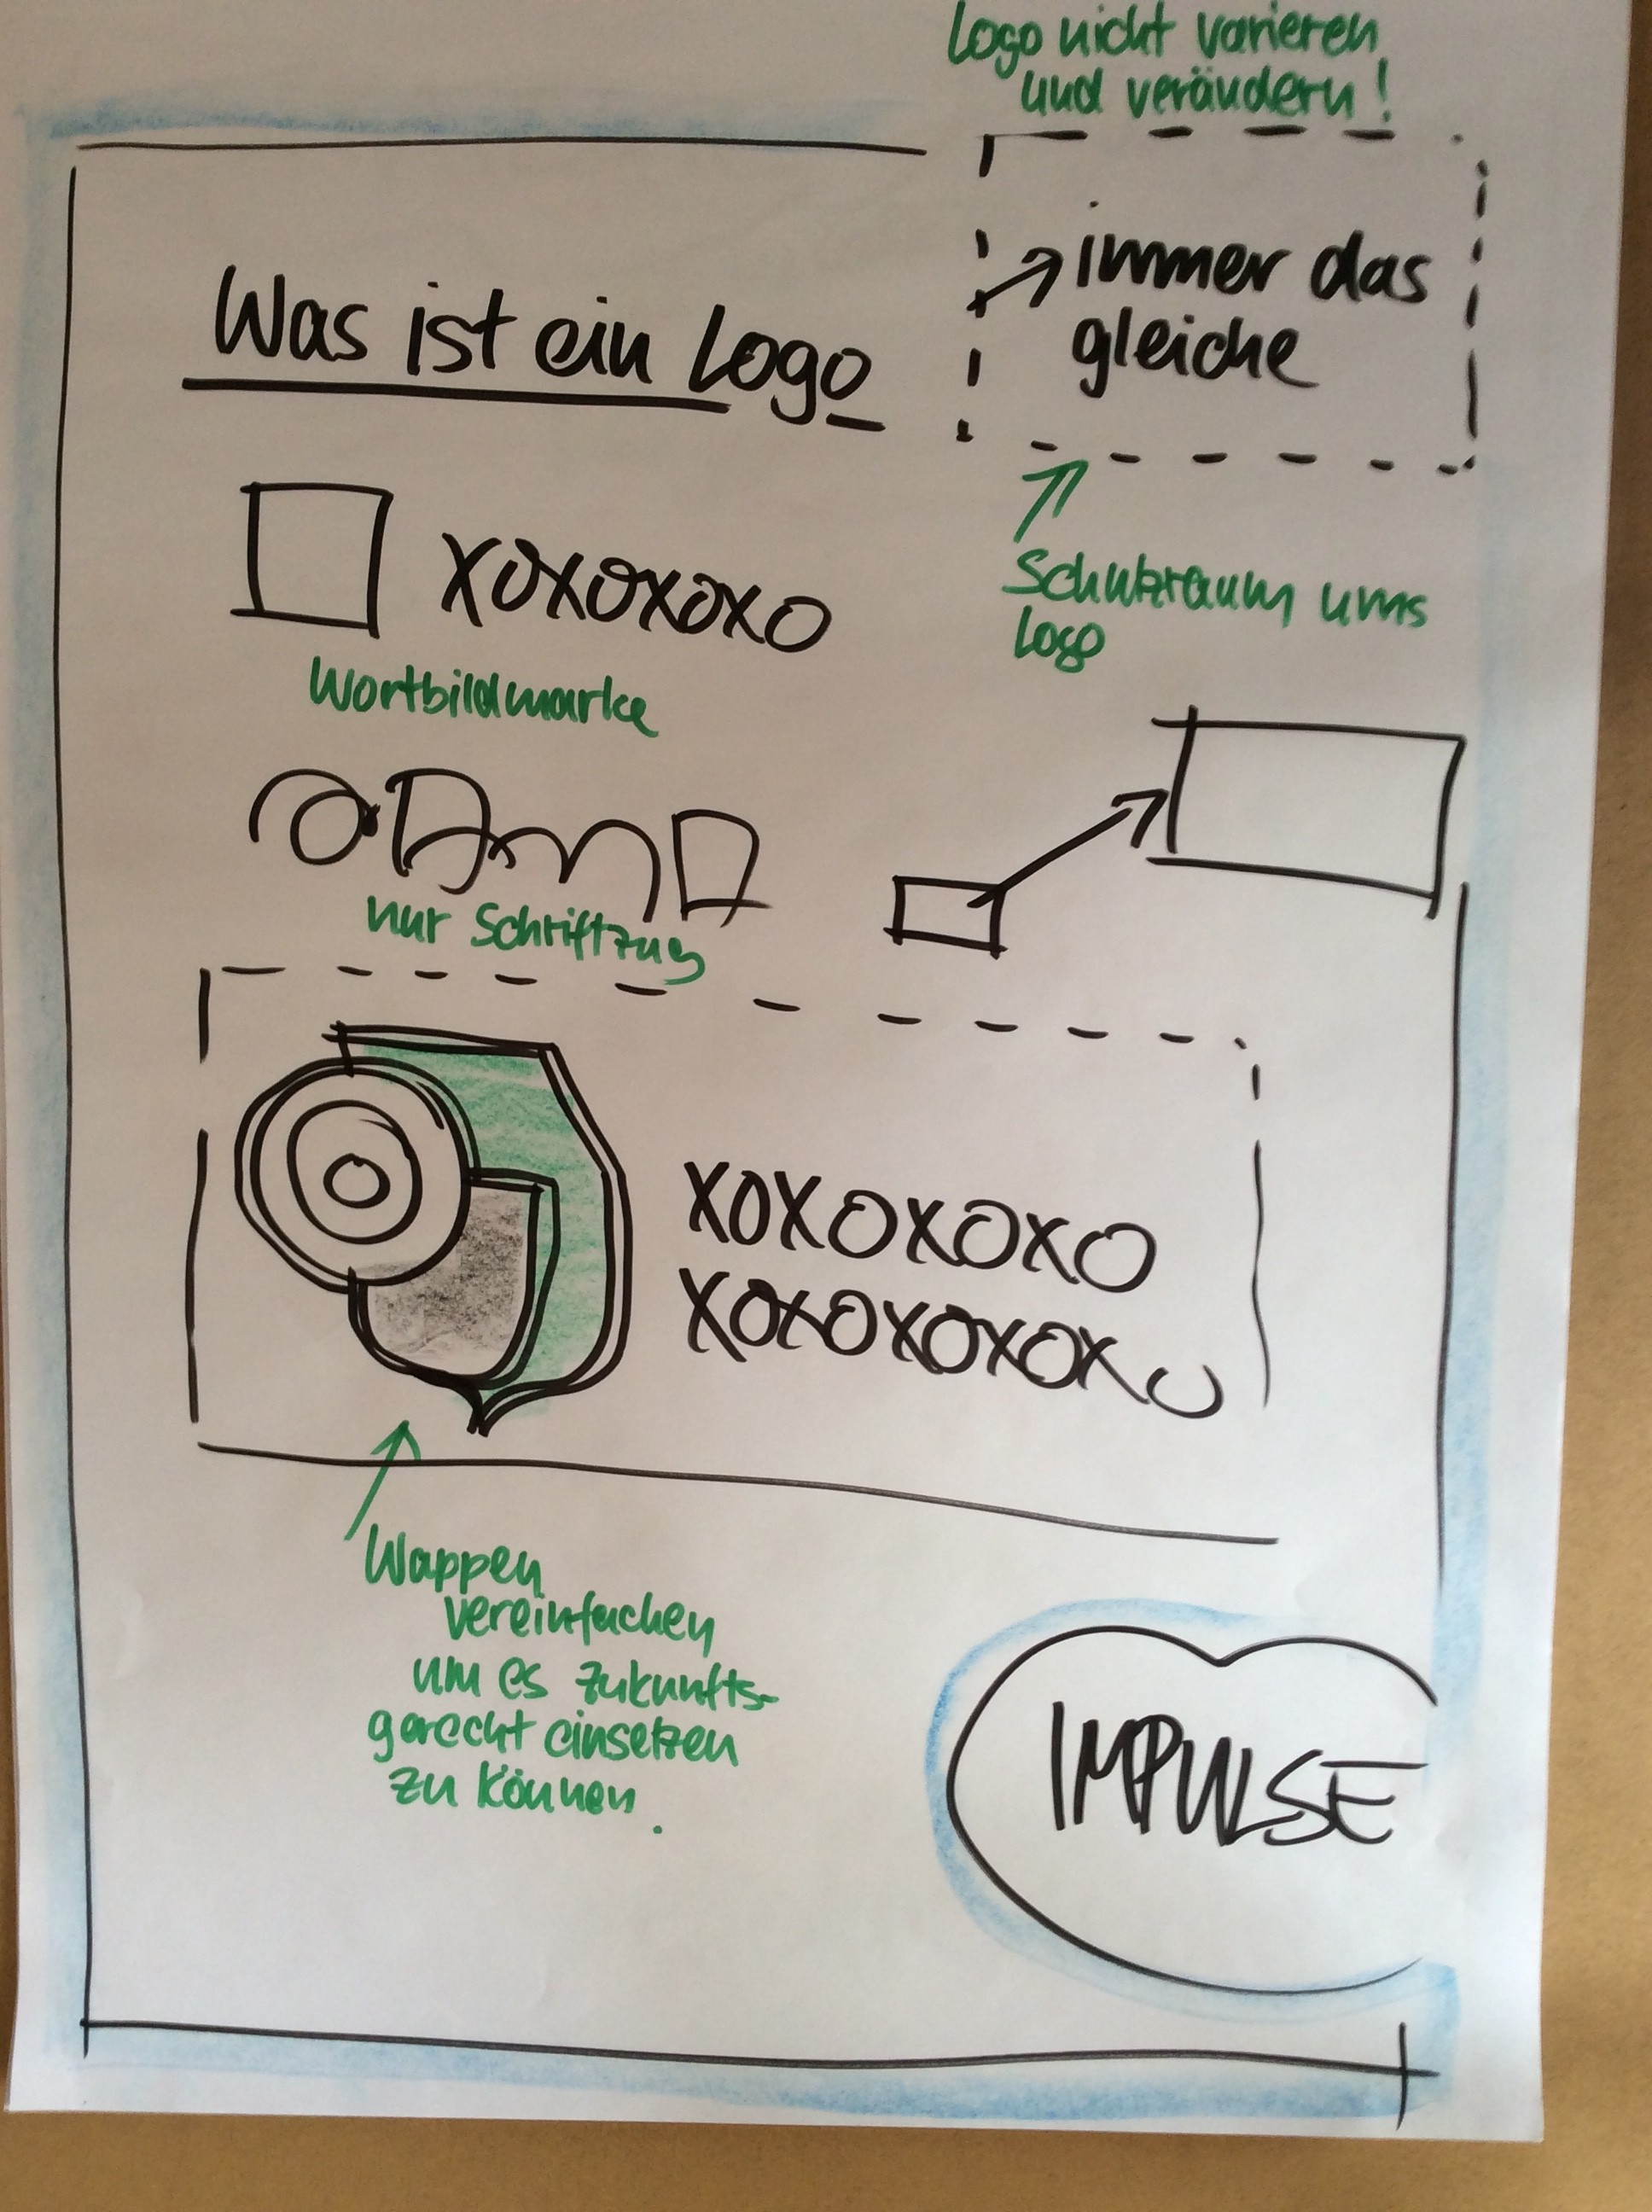 Logo nicht varieren
und verändern!
immer das
gleiche
Was ist ein Logo
Schutzraum ums
Logo
XOXOXOXO
Wortbildmarke
nur Schriftzug
XOXOXOXO
XOXOXOXOXO
Wappen
vereinfachen
um es zukunfts-
gerecht einsetzen
zu können.
IMPULSE